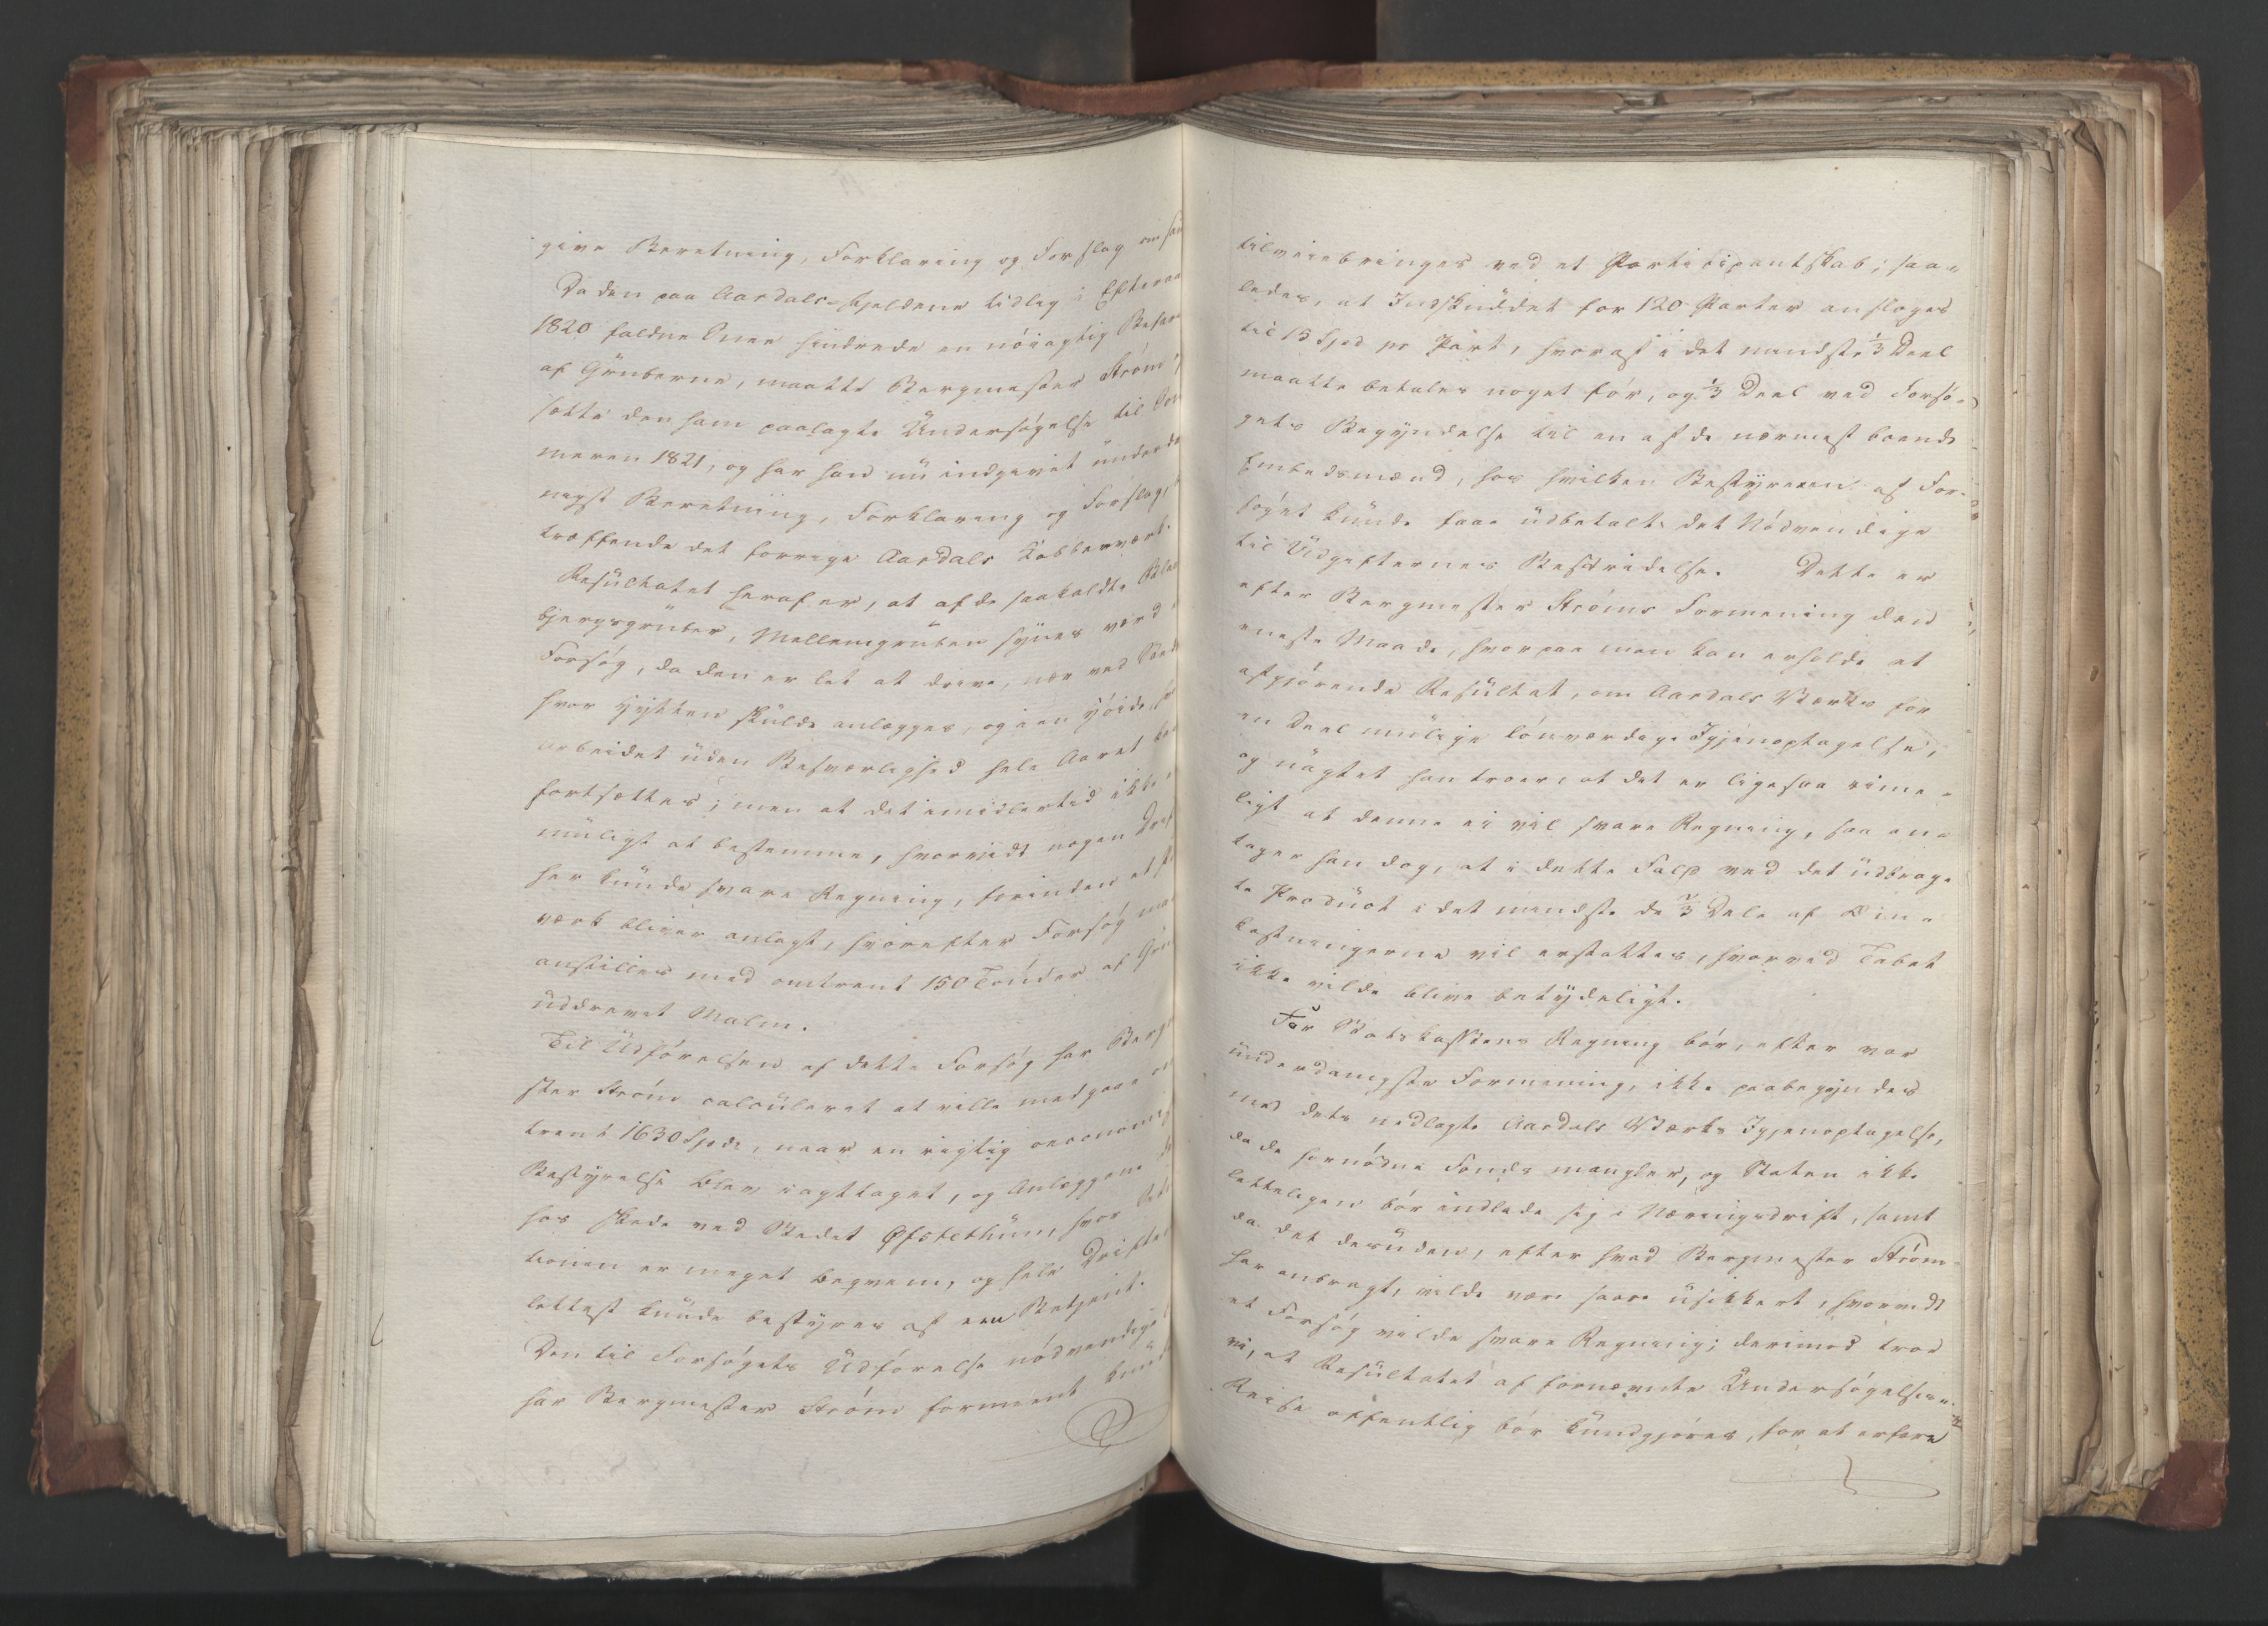 give Beretning, Forklaring og Forslag om
Da den paa Aardals-Fjeldene tidlig i Efteraa
1820 faldne Snee hindrede en nöiagtig Befar
af Grüberne, maatte Bergmester Ström
sætte den ham paalagte Ündersögelse til Som
meren 1821, og har han nü indgivet ünderda
nigst Beretning, Forklaring og Forslag,
træffende det forrige Aardals Kobberværk.
Resültatet heraf er, at af de saakaldte Bles
bjergsgrüber, Mellemgrüben synes værd
Forsög, da den er let at drive, nær ved Sted
hvor Hytten skülde anlægges, og i en Höide,
Arbeidet üden Besværlighed hele Aaret kan
fortsættes; men at det imidlertid ikke
müligt at bestemme, hvorvidt nogen Drif
her künde svare Regning, forinden et
værk bliver anlagt, hvorefter Forsög maa
anstilles med omtrent 150 Tönder af Grü
üddrevet Malm.
Til Üdförelsen af dette Forsög har Bergm
ster Ström calcüleret at ville medgaae om
trent 1630 Spdr, naar en rigtig oeconomis
Bestyrelse blev iagttaget, og Anlæggene
hos skede ved Stedet Øfstethün, hvor
tionen er meget beqvem, og hele Driften
lettest künde bestyres af een Betjent.
Den til Forsögets Üdförelse nödvendige
har Bergmester Ström formeent künde
tilveiebringes ved et Participantskab; saa-
ledes, at Indskuddet for 120 Parter ansloges
til 15 Spd pr Part, hvoraf i det mindste 1/3 Deel
maatte betales noget för, og 1/3 Deel ved Forsö-
gets Begyndelse til en af de nærmest boende
Embedsmænd, hos hvilken Bestyreren af For-
söget künde faae üdbetalt det Nödvendige
til Üdgifternes Bestridelse. Dette er
efter Bergmester Ströms Formening den
eneste Maade, hvorpaa man kan erholde et
afgjörende Resültat, om Aardals Værks for
en Deel mülige lönværdige Igjenoptagelse,
og üagtet han troer, at det er ligesaa rime-
ligt at denne ei vil svare Regning, saa an-
tager han dog, at i dette Fald ved det üdbrag-
te Prodüct i det mindste de 2/3 Dele af Om-
kostningerne vil erstattes, hvorved Tabet
ikke vilde blive betydeligt.
For Statskassens Regning bör, efter vor
ünderdanigste Formening, ikke paabegyndes
med dets nedlagte Aardals Værks Igjenoptagelse,
da de fornödne Fonds mangler, og Staten ikke
letteligen bör indlade sig i Næringsdrift, samt
da det desüden, efter hvad Bergmester Ström
har anbragt, vilde være saare üsikkert, hvorvidt
et Forsög vilde svare Regning; derimod troe
vi, at Resültatet af fornævnte Ündersögelses-
Reise offentlig bör kündgjöres, for at erfare